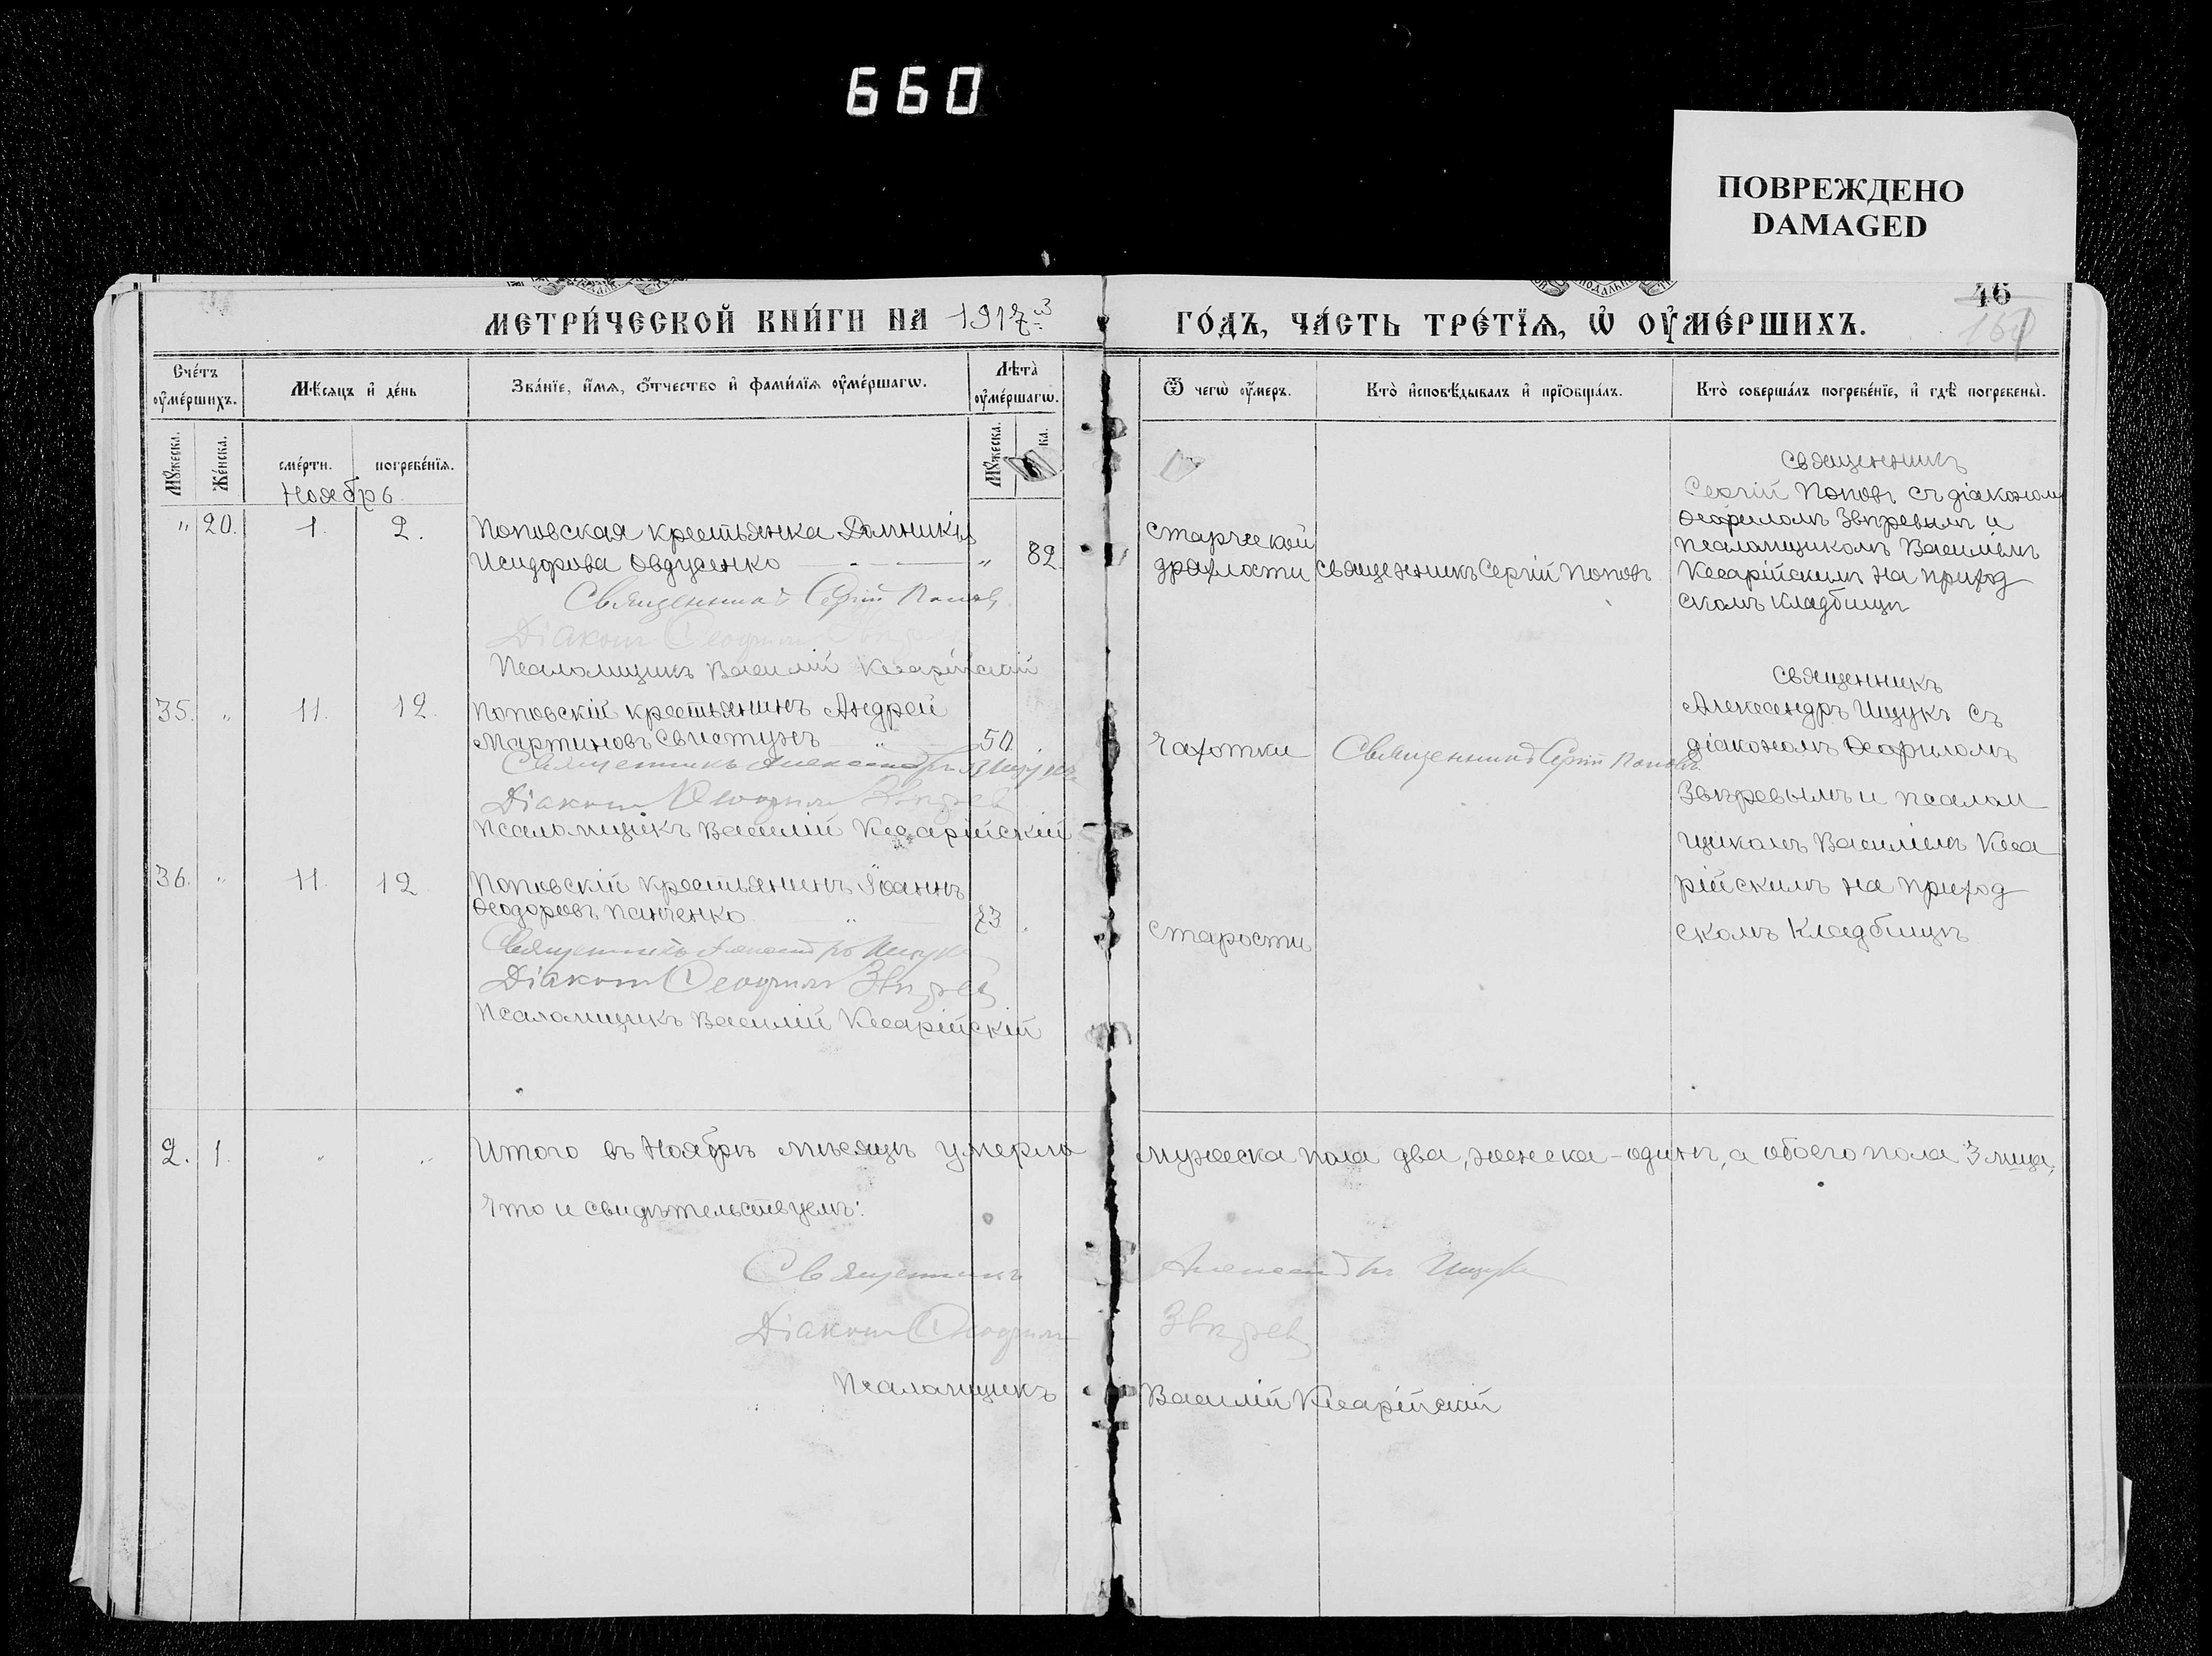 660
ПОВРЕЖДЕНО
DAMAGED
46
МЕТРИ́ЧЕСКОЙ КНИ́ГИ НА 1917й
ГО́ДЪ, ЧА́СТЬ ТРЕ́ТЇѦ, Ѡ҆ ОУ҆МЕ́РШИХЪ.
Сче́тъ оу҆ме́ршихъ.
Мѣ́сяцъ и҆ де́нь
Зва́нїе, и҆́мѧ, ѻ҆́тчество и҆ фами́лїѧ оу҆ме́ршагѡ.
Лѣ́та оу҆ме́ршагѡ.
Ѿ чегѡ̀ оу҆́меръ.
Кто̀ и҆сповѣ́дывалъ и҆ прїѻбща́лъ.
Кто̀ соверша́лъ погребе́нїе, и҆ гдѣ̀ погребены̀.
Мꙋ́жеска.
Же́нска.
сме́рти.
погребе́нїѧ.
Мꙋ́жеска.
ка.
Ноябрь
" 20. 1. 2. Поповская крестьянка Домникія
Исидорова Овдусенко " 82
Священникъ Сергій Поповъ
Діаконъ Ѳеофилъ
Псаломщикъ Василій Кесарійскій
старческой
дряхлости
священникъ Сергій Поповъ
священникъ
Сергій Поповъ съ діакономъ
Ѳеофиломъ Звѣревымъ и
псаломщикомъ Василіемъ
Кесарійскимъ на приход
скомъ кладбищѣ
35. " 11. 12. Поповскій крестьянинъ Андрей
Мартиновъ Свистунъ " 50
Священникъ Александръ Ищукъ
Діаконъ Ѳеофилъ Звѣревъ
Псаломщикъ Василій Кесарійскій
чахотки
Священникъ Сергій Поповъ
священникъ
Александръ Ищукъ съ
діакономъ Ѳеофиломъ
Звѣревымъ и псалом
щикомъ Василіемъ Кеса
рійскимъ на приход
скомъ кладбищѣ
36. " 11. 12 Поповскій крестьянинъ Іоаннъ
Ѳеодоровъ Панченко " 73
Священникъ Александръ Ищукъ
Діаконъ Ѳеофилъ Звѣревъ
Псаломщикъ Василій Кесарійскій
старости
2. 1. " " Итого въ Ноябрѣ мѣсяцѣ умерло мужеска пола два, женска - одинъ, а обоего пола 3 лица,
что и свидѣтельствуемъ:
Священникъ Александръ Ищукъ
Діаконъ Ѳеофилъ Звѣревъ
Псаломщикъ Василій Кесарійскій